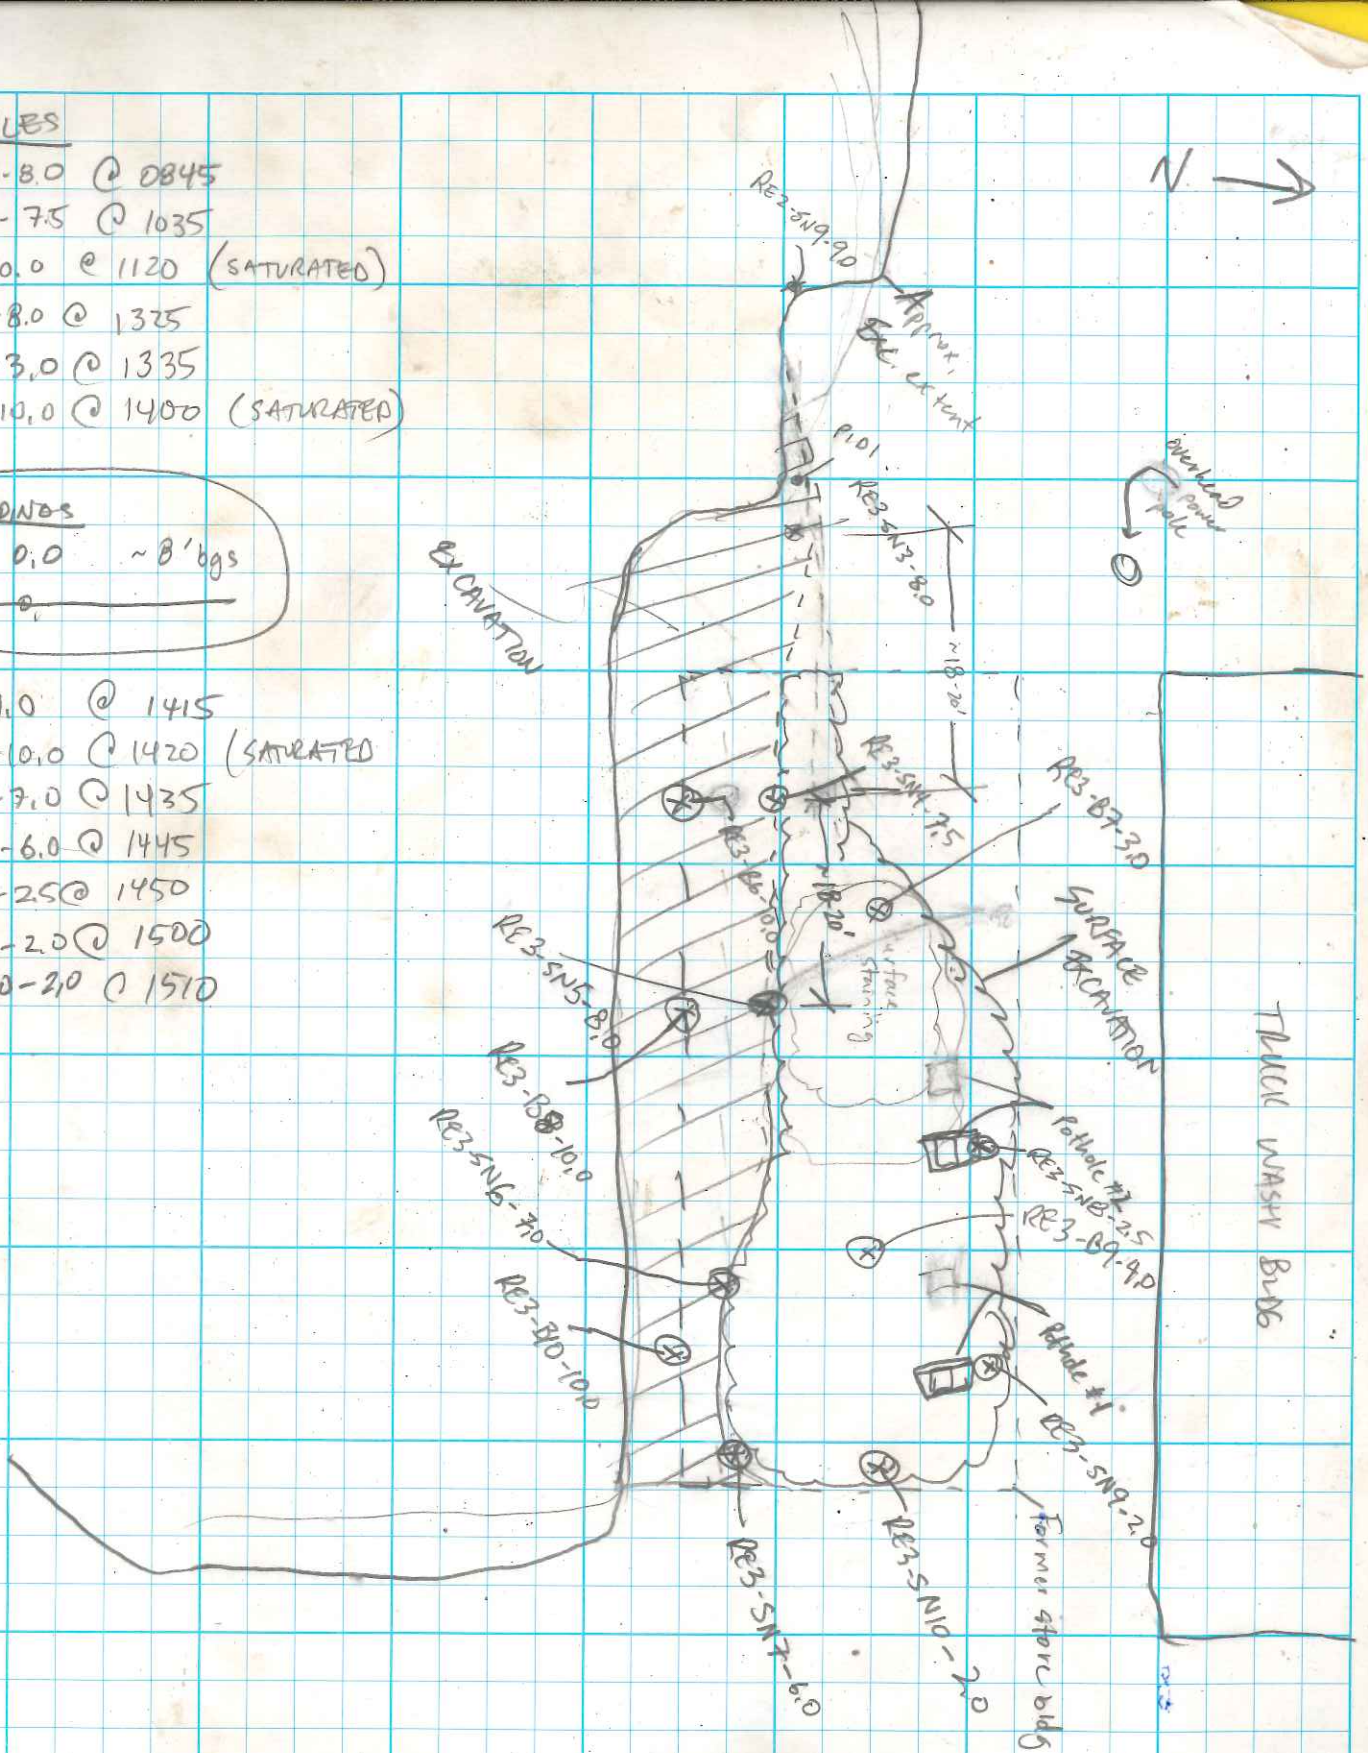 LES
-8.0 @ 0845
- 7.5 @ 1035
0.0 @ 1120 (SATURATED)
8.0 @ 1325
3.0 @ 1335
10.0 @ 1400 (SATURATED)
0.0 ~8' bgs
1.0 @ 1415
-10.0 @ 1420 (SATURATED
-7.0 @ 1435
-6.0 @ 1445
-2.5 @ 1450
-2.0 @ 1500
0-2.0 @ 1510
N
RE2-SN9-9.0
Approx.
Exc. extent
PID1
RE3-SN3-8.0
~18-20'
overhead
power
pole
EXCAVATION
RE3-SN4-7.5
RE3-B7-3.0
RE3-B6-10.0
~18-20'
surface
staining
SURFACE
EXCAVATION
RE3-SN5-8.0
RE3-B8-10.0
RE3-SN6-7.0
RE3-B10-10.0
Pothole #2
RE3-SN8-2.5
RE3-B9-4.0
Pothole #1
RE3-SN9-2.0
RE3-SN7-6.0
RE3-SN10-2.0
Former store bldg
TRUCK WASH BLDG